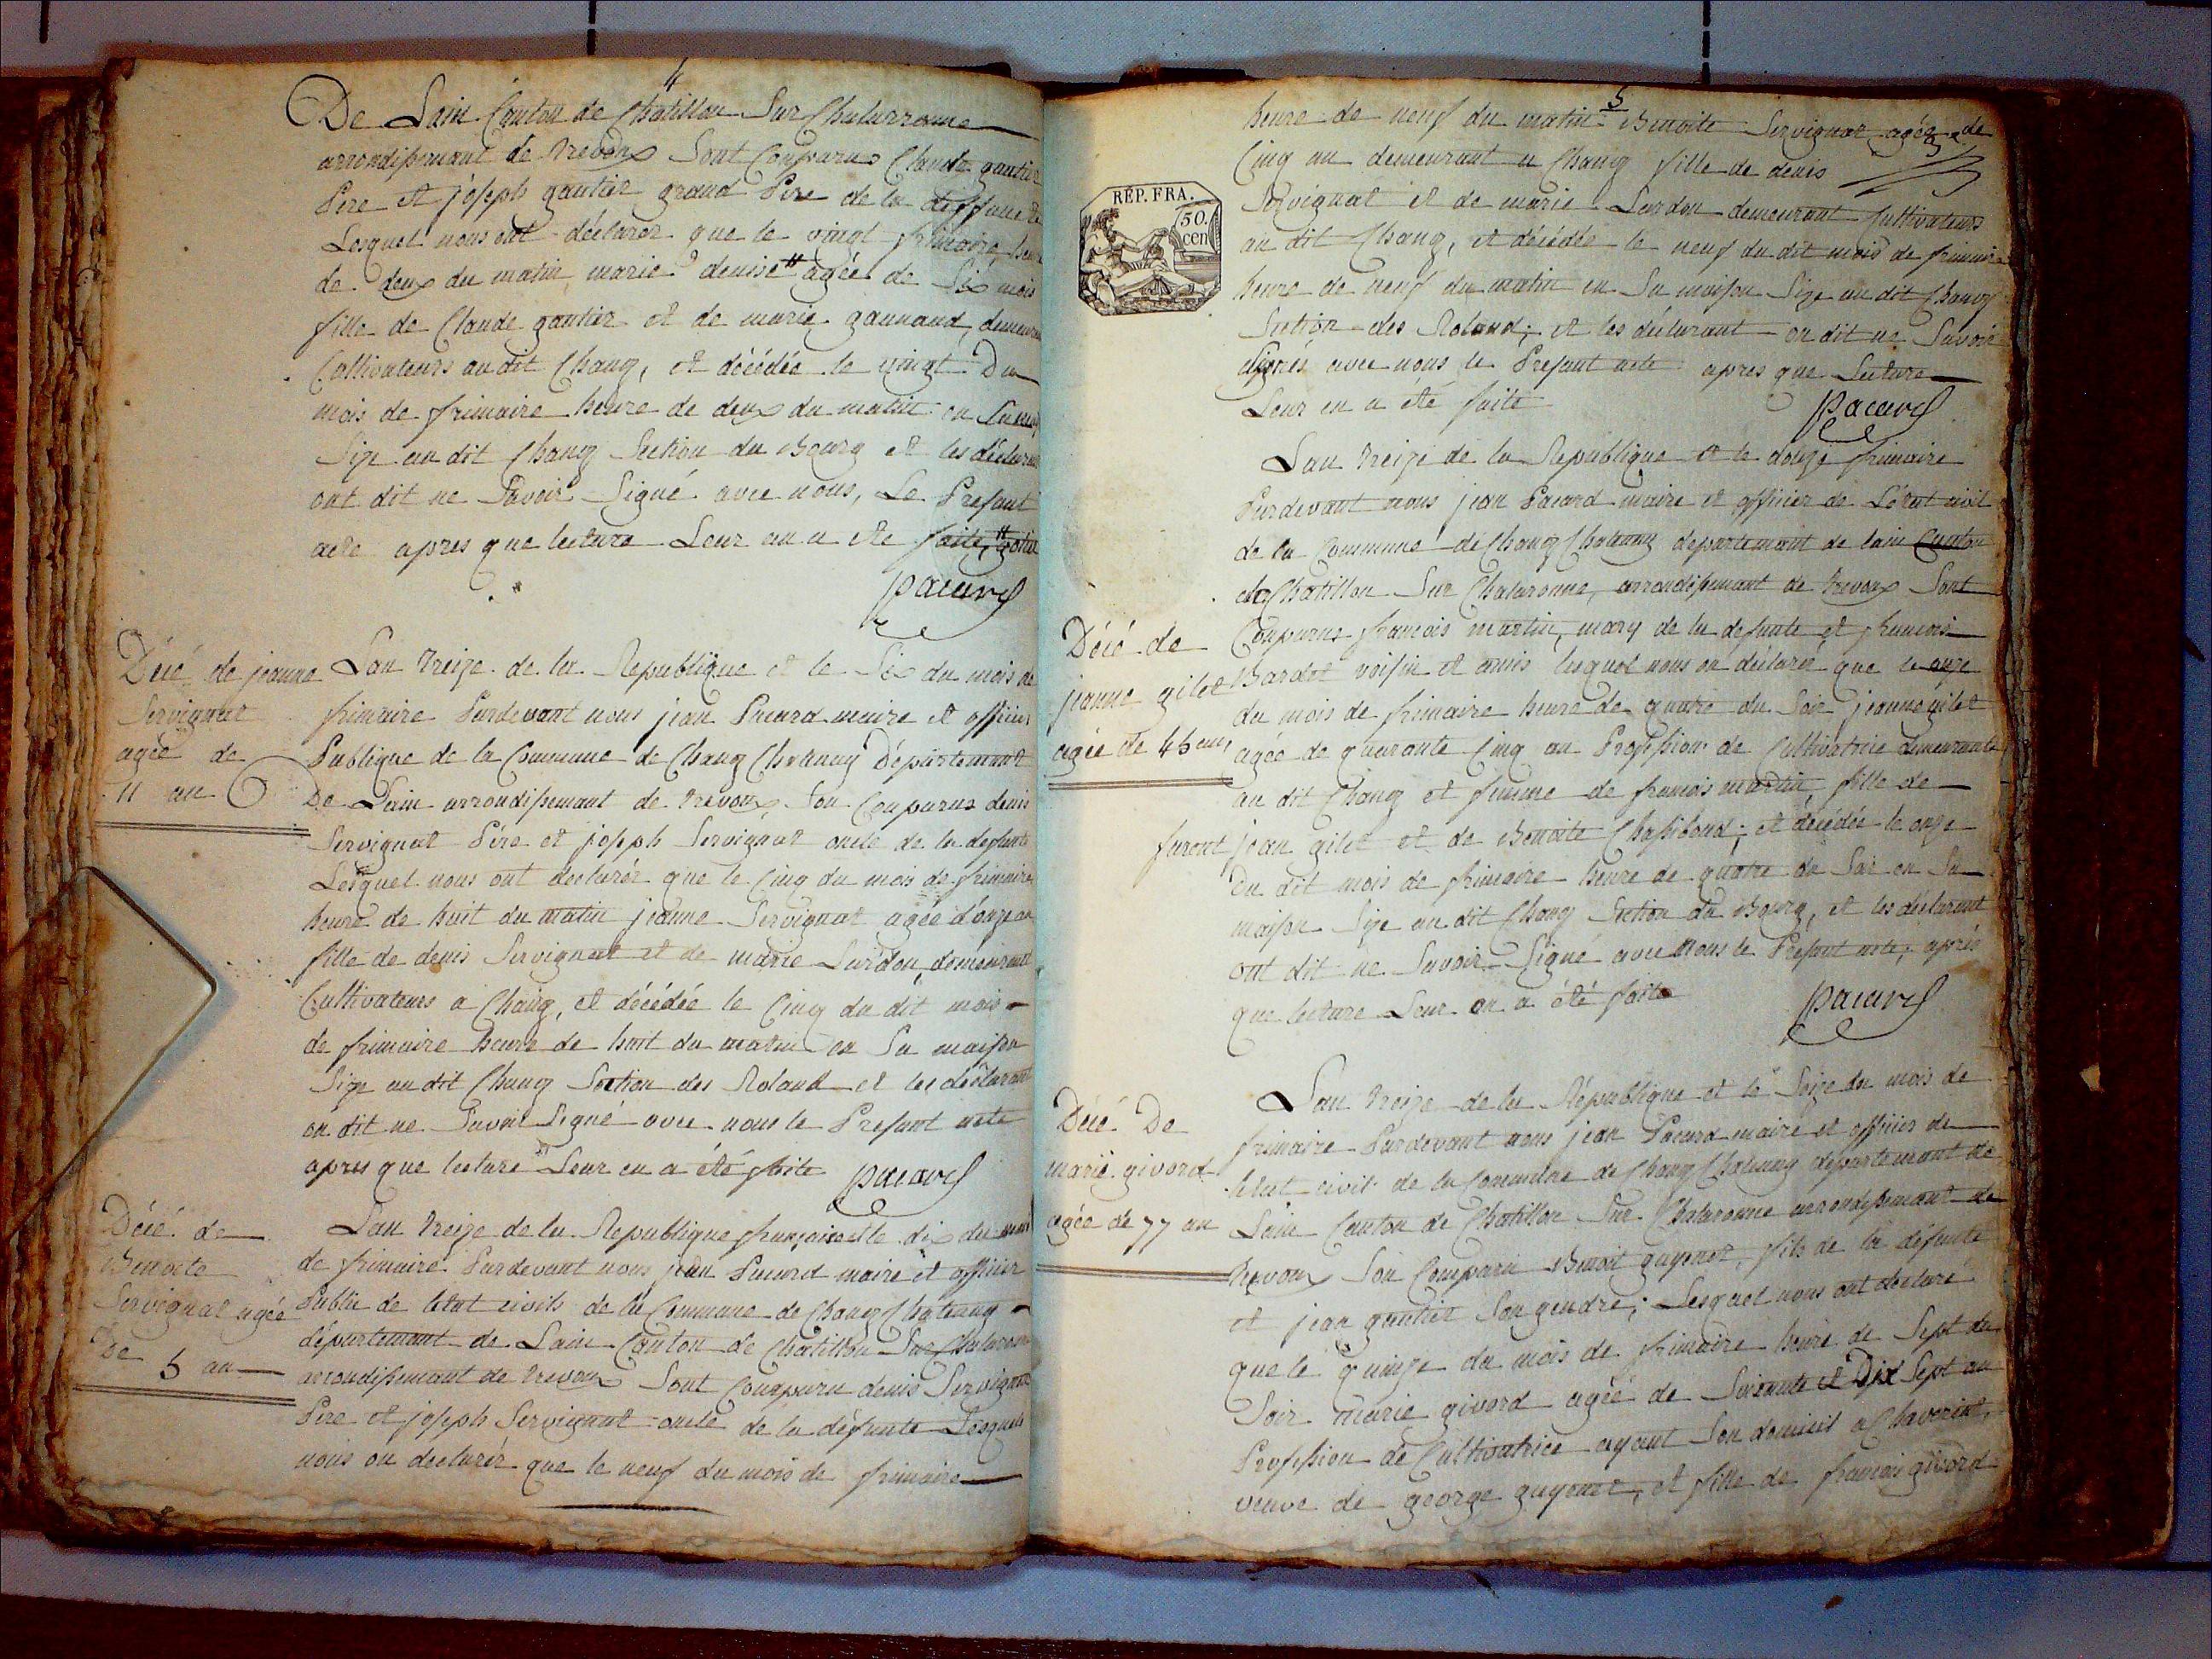 4
De Lain Canton de Chatillon Sur Chalarronne
arrondissemant de trevoux Sont Comparus Claude gautier
Pere et joseph gautier grand Pere de la deffunte
Lesquel nous ont déclarer que le vingt frimaire heure
de deux du matin marie denise # agée de Six mois
fille de Claude gautier et de marie gannand, demeurant
Cultivateurs au dit Chang, et décédée le vingt Du
mois de frimaire heure de deux du matin en Sa
Size au dit Chang Section du Bourg et les déclarant
ont dit ne Savoir Signé avec nous, Le Presant
acte apres que lecture Leur an a ete faite, #
pacard
Décé de jeanne
Servignat
agée de
11 an
Lan treize de la Republique et le Six du mois de
frimaire Pardevant nous jean Pacard maire et officier
Publique de la Commune de Chang Chatenay Département
De Lain arrondissemant de trevoux, Son Comparus denis
Servignat Pére et joseph Servignat oncle de la defunte
Lesquel nous ont declarér que le Cinq du mois de frimaire
heure de huit du matin jeanne Servignat agée d'onze an
fille de denis Servignat et de marie Lurdon, demeurant
Cultivateurs a Chang, et décédée le Cinq du dit mois
de frimaire heure de huit du matin en Sa maison
Size au dit Chang Section des Roland et les déclarant
on dit ne Savoir Signé avec nous le Presant acte
apres que lecture Leur en a été faite pacard
Décé de
Benoite
Servignat agée
De 5 an
Lan treize de la Republique françaisse le dix du mois
de frimaire Pardevant nous jean Pacard maire et officier
Public de letat civils de la Commune de Chang Chatenay
département de Lain Canton de Chatillon Sur Chalaronne
arrondissemant de trevoux Sont Comparu denis Servignat
Pere et joseph Servignat oncle de la défunte Lesquels
nous on declarér que le neuf du mois de frimaire
5
heure de neuf du matin Benoite Servignat agée de
Cinq an demeurant a Chang fille de denis
Servignat et de marie Lurdon demeurant Cultivateurs
au dit Chang, et décédée le neuf du dit mois de frimaire
heure de neuf du matin en Sa maison Size au dit Chang
Section des Roland; et les déclarant on dit ne Savoir
Signés avec nous le Presant acte apres que Lecture
Leur en a été faite pacard
RÉP. FRA.
50.
cen
Décé de
jeanne gilet
agée de 45 ans
Lan treize de la Republique et le douze frimaire
Pardevant nous jean Pacard maire et officier de Létat civil
de la Commune de Chang Chatenay departemant de lain Canton
de Chatillon Sur Chalaronne, arrondissemant de trevoux Sont
Comparus francois martin, mary de la defunte et francois
Bardet voisin et amis lesquel nous on déclaré que le onze
du mois de frimaire heure de quatre du Soir jeanne gilet
agée de quarante Cinq an Profession de Cultivatrice demeurante
au dit Chang et femme de francois martin, fille de
furent jean gilet et de Benoite Chassiboud; et décédée le onze
Du dit mois de frimaire heure de quatre du Soir en Sa
maison Size au dit Chang Section du Bourg, et les déclarant
ont dit ne Savoir Signé avec nous le Presant acte, aprés
que lecture Leur en a été faite pacard
Décé De
marie givord
agée de 77 an
Lan treize de la République et le Seize du mois de
frimaire Pardevant nous jean Pacard maire et officier de
letat civil de la Commune de Chang Chatenay departemant de
Lain Canton de Chatillon Sur Chalaronne arrondissemant de
trevoux Son Comparu Benoit guyenet, fils de la défunte
et jean gautier Son gendre; Lesquel nous ont declaré
que le quinze du mois de frimaire heure de Sept du
Soir marie givord agée de Soisante et Dix Sept an
Profession de Cultivatrice ayant Son domicil a
veuve de george guyenet, et fille de francois givord